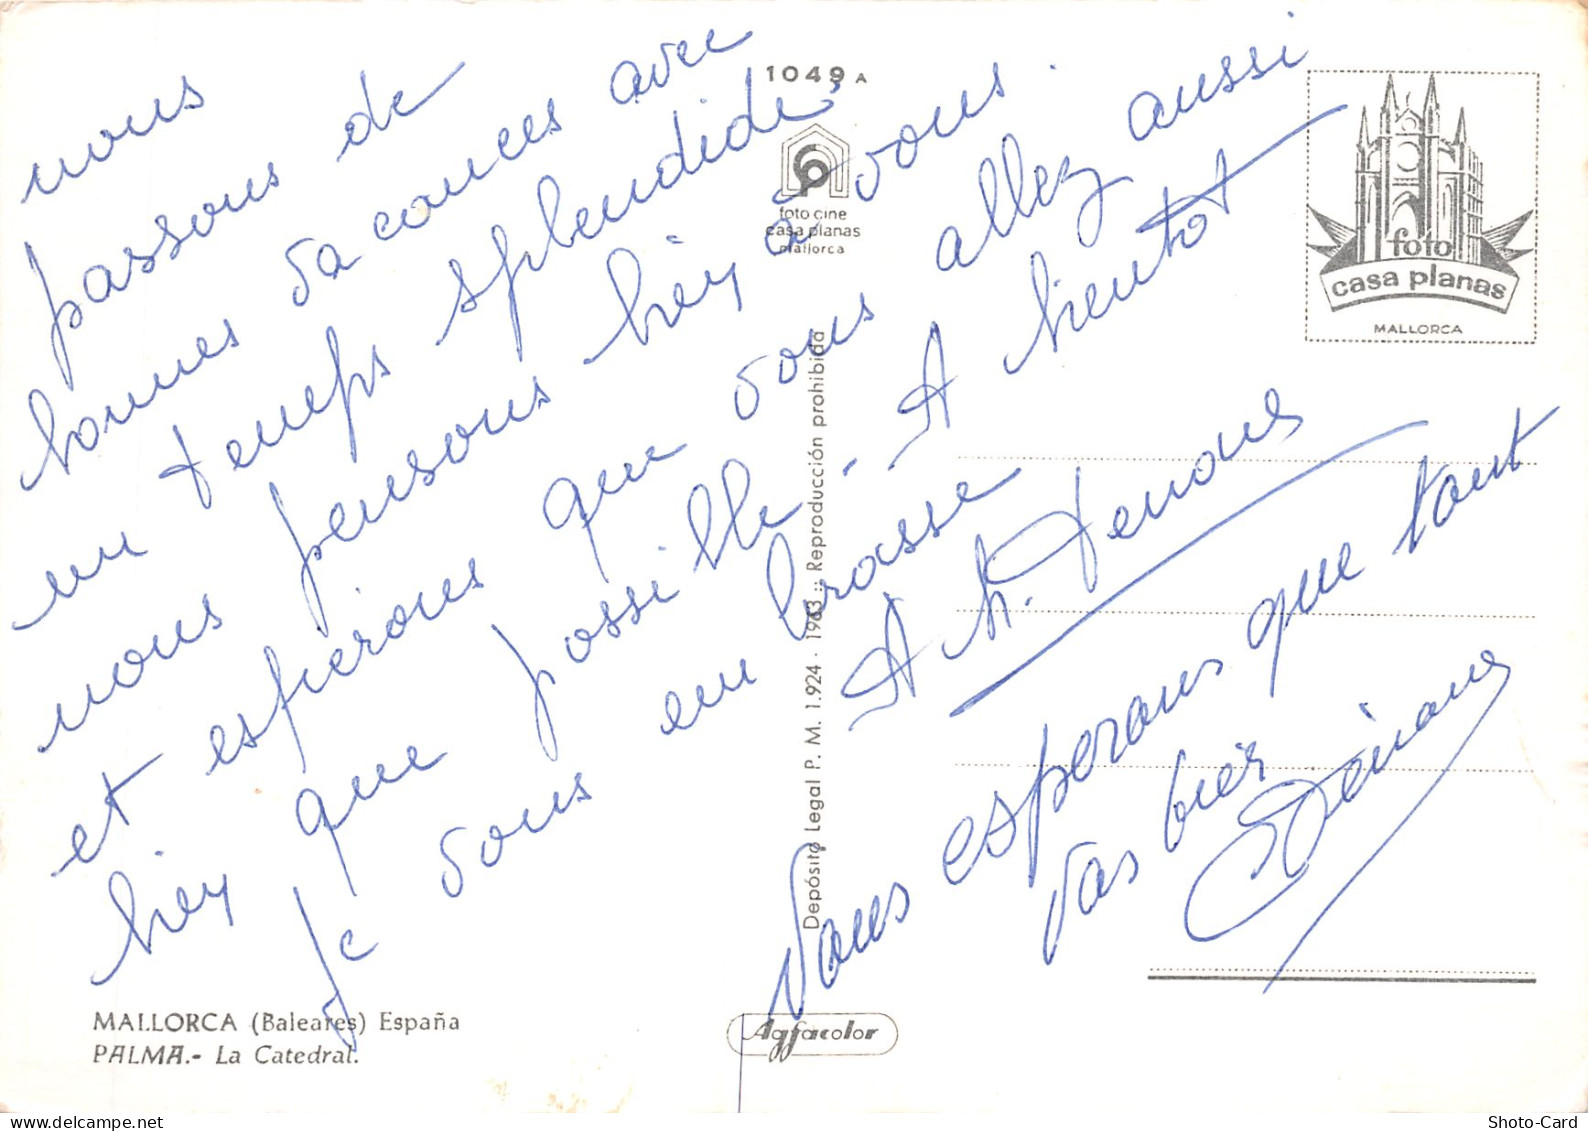 nous
passons de
bonnes vacances avec
un temps splendide,
nous pensons bien à vous.
et espérons que vous allez aussi
bien que possible - A bientot
je vous embrasse
Nous esperons que tout
vas bien
1049 A
foto cine
casa planas
mallorca
foto
casa planas
MALLORCA
Depósito Legal P. M. 1.924 - 1963 :: Reproducción prohibida
MALLORCA (Baleares) España
PALMA.- La Catedral.
Agfacolor
Shoto-Card